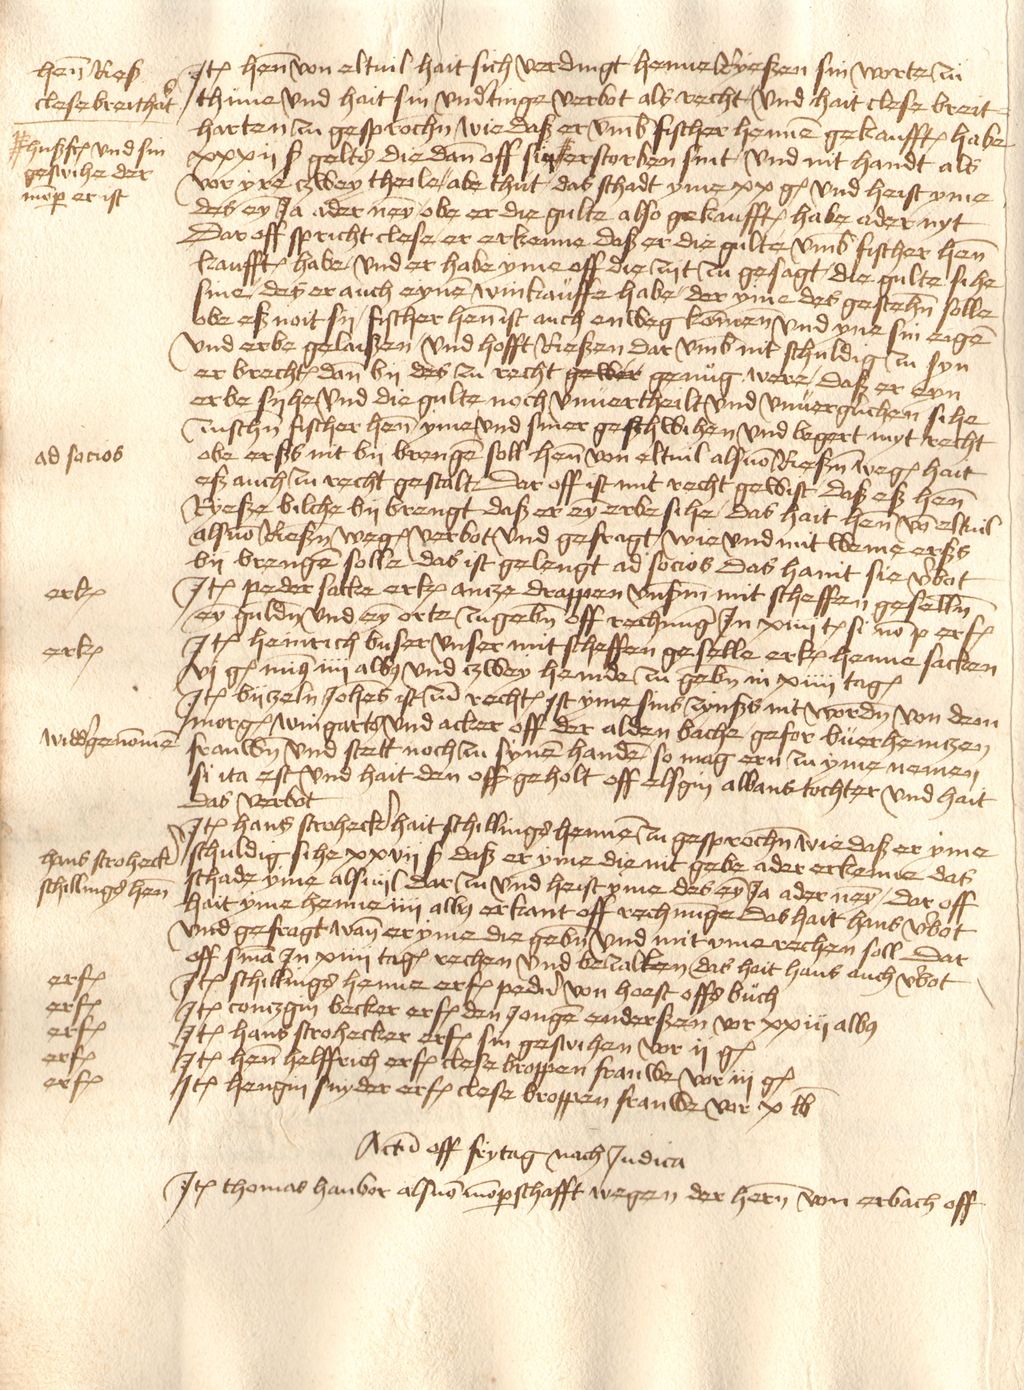 Henn Rieß
clese breithart
hußfr und sin
geswihe der
momp er ist
Jt henn von eltuil hait sich verdingt henne Ryeßen sin worte zu
thune und hait sin underdinge verbot als recht und hait clese breit
harten zu gesprochn wie daß er umb fischer hennen gekaufft habe
xxxij ß gelts die dan off sin erstorben sint und nit handt als
vor yre czwey theile / abe thut / das schadt yme xx gl und heist yme
des ey Ja ader neyn obe er die gulte also gekaufft habe ader nyt
Dar off spricht clese er erkenne daß er die gulte umb fischer henn
kaufft habe und er habe yme off die zijt zu gesagt die gulte sihe
sine / des er auch eynen winkauffe habe der yme des gestehn solle
obe eß noit sij / fischer henn ist auch enweg kommen und yne sin eigen
und erbe gelaißen und hofft Rießen dar umb nit schuldig zu syn
er brecht dan bij des zu recht gewer genug were / daß er eyn
erbe sihe und die gulte noch unuertheilt und unuerglichen sihe
zuschn fischer henn yme und siner geschwihen und begert myt recht
ad socios
obe erßs nit bij brengen soll henn von eltuil als von Rießen wegen hait
eß auch zu recht gestalt Dar off ist mit recht gewist daß eß henn
Ryeße bilche bij brengt daß er eyn erbe sihe / das hait henn von eltuil
als von Rießen wegen verbot und gefragt wie und mit weme erßs
bij brengen solle das ist gelengt ad socios das hant sie verbot
erk
Jt peder sacke erk antze drappen unserm mit scheffen geselln
ey gulden und ey orte zu geben off rechnung In xiiij t si non p erf
erk
Jt heinrich unser mit scheffen geselle erk henne sacken
vi gl minus iiij albus und czwey hemde zu geben in xiiij tagen
Jt bijzeln Johes ist zu recht Ist yme sins zinßs nit worden von dem
morgen wingarts und acker off der alden bache gefor buerhentzen
widdergenommen
frauwen und stelt noch zu synen handen so mag ern zu yme nemen
si ita est und hait den off geholt off elsgin albans tochter und hait
das verbot
hans strohecker
schillings henn
Jt hans strohecker hait schillings hennen zu gesprochn wie daß er yme
schuldig sihe xxvii ß daß er yme die nit gebe ader erkenne das
schade yme alsuil dar zu und heist yme des ey Ja ader neyn / dar off
hait yme henne iiij albus erkant off rechnunge das hait hans verbot
und gefragt wan er yme die geben und mit yme rechen soll Dar
off sina In xiiij tagen rechen und bezalten / das hait hans auch verbot
erf
Jt schillings henne erf peder von hoest offs buch
erf
Jt contzgin becker erf den Jongen enderßen vor xxiii albus
erf
Jt hans strohecker erf sin geswihen vor ij gl
erf
Jt henn helffrich erf clese kroppen frauwe vor iij gl
erf
Jt hengin snyder erf clese kroppen frauwe vor x lb
Actum off frytag nach Judica
Jt thomas haubor als von mompschafft wegen der hern von erbach off